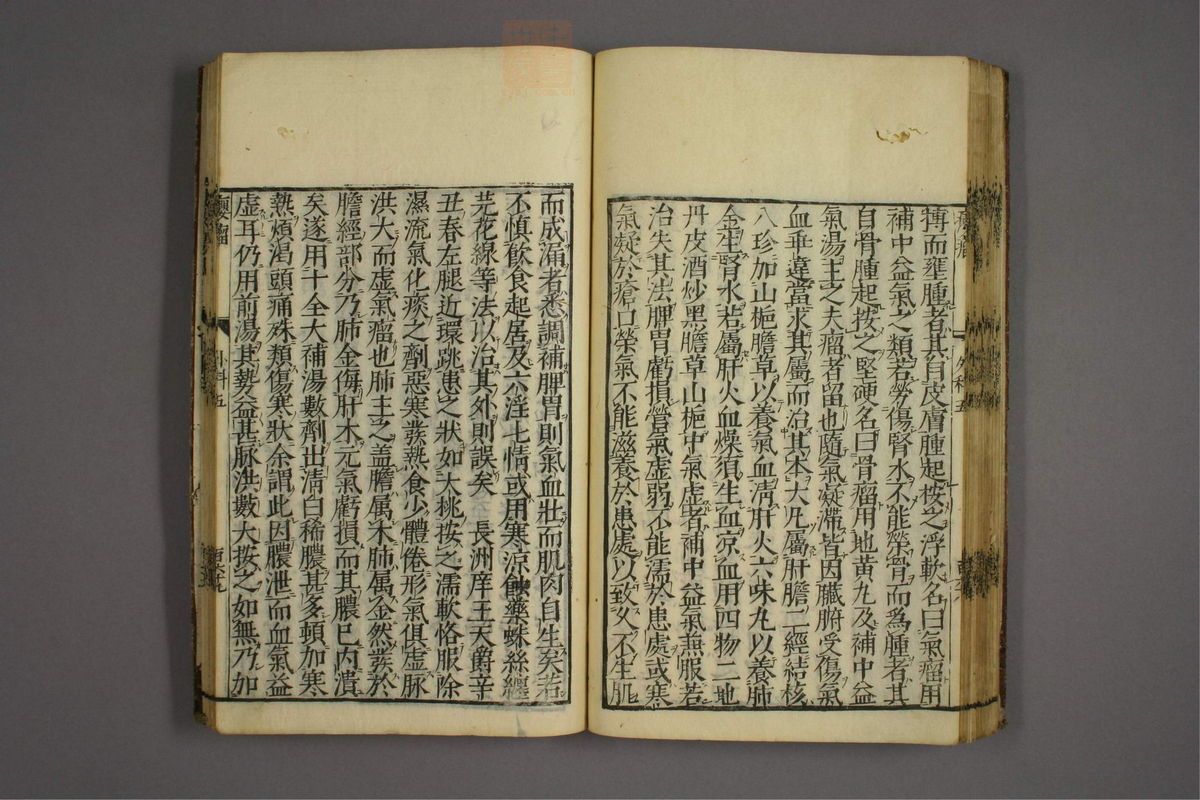 搏而壅腫者其自皮膚腫起按之浮軟名曰氣瘤用
補中益氣之類若勞傷腎水不能榮骨而為腫者其
自骨腫起按之堅硬名曰骨瘤用地黃丸及補中益
氣湯主之夫瘤者留也隨氣凝滯皆因臟腑受傷氣
血乖違當求其屬而治其本大凡屬肝膽二經結核
八珍加山梔膽草以養氣血淸肝火六味丸以養肺
金生腎水若屬肝火血燥須生血凉血用四物二地
丹皮酒炒黑膽草山梔中氣虛者補中益氣兼服若
治失其法脾胃虧損營氣虛弱不能濡於患處或寒
氣凝於瘡口榮氣不能滋養於患處以致久不生肌
而成漏者悉調補脾胃則氣血壯而肌肉自生矣若
不慎飲食起居及六淫七情或用寒涼蝕藥蛛絲纏
芫花線等法以治其外則誤矣 長洲庠王天爵辛
丑春左腿近環跳患之狀如大桃按之濡軟恪服除
濕流氣化痰之劑惡寒發熱食少體倦形氣俱虛脈
洪大而虛氣瘤也肺主之蓋膽属木肺属金然發於
膽經部分乃肺金侮肝木元氣虧損而其膿已内潰
矣遂用十全大補湯數劑出清白稀膿甚多頓加寒
熱煩渴頭痛殊類傷寒狀余謂此因膿泄而血氣益
虛耳仍用前湯其勢益甚脈洪數大按之如無乃加
癭瘤
外科五